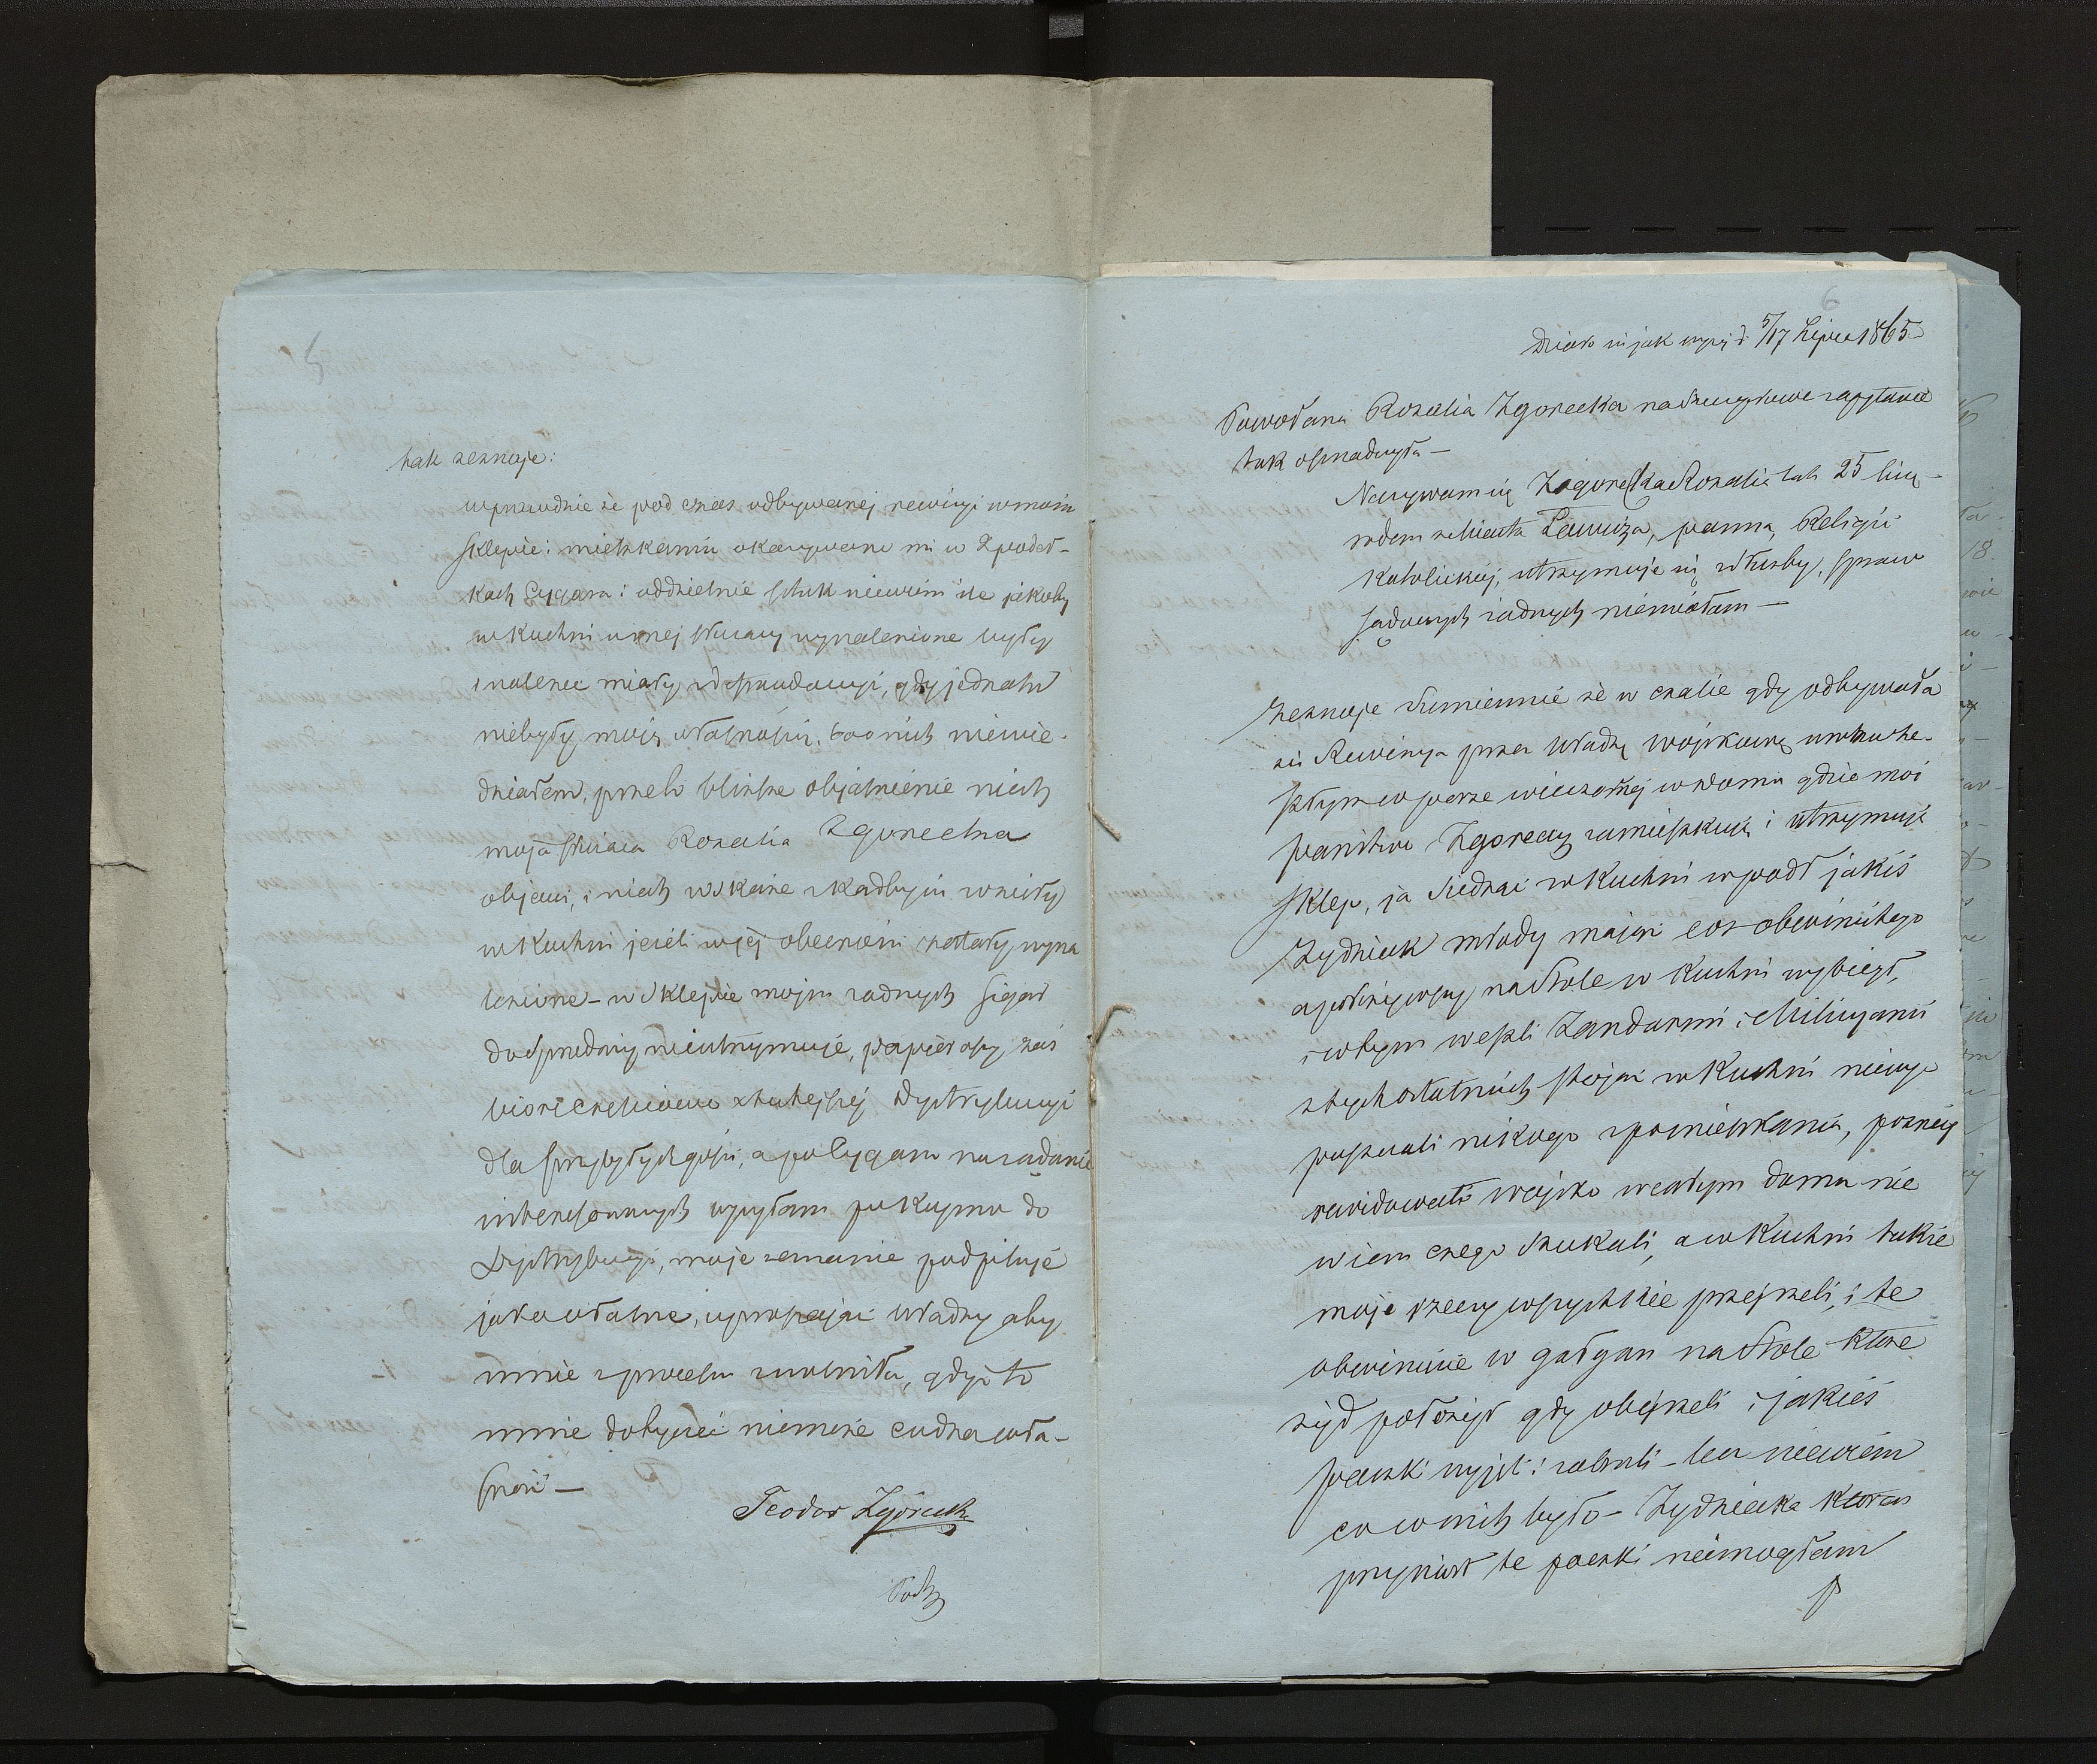 5
tak zeznaje:
wprawdzie że pod czas odbywanej rewizyi w moim
Sklepie i mieszkaniu okazywano mi w 2 pudeł-
kach Cygara i oddzielnie sztuk niewiem ile jakoby
w kuchni u mej służący wynalezione były
i należeć miały z defraudacyi, gdy jednakże
niebyły moją własnością, bo o nich niewie-
działem, przeto bliższe objaśnienie niech
moja służąca Rozalia Zgorecka
objawi, i niech wskaże skadby się wzieły
w kuchni jeżeli w jej obecności zostały wyna
lezione – w Sklepie mojm żadnych Sigar
do sprzedaży nieutrzymuje, papierosy zaś
biorę z tutejszej Dystrybucyi
dla przybyłych gości, a po Cygara na żądanie
interesowanych posyłam po kupno do
Dystrybucyi, moje zeznanie podpisuje
jako własne, upraszając Władzy aby
mnie z procesu zwolniła, gdyż to
mnie dotyczeć niemoże cudza wła-
sność –
Teodor Zgórecki
6
Działo się jak wyżej d. 5/17 Lipca 1865
Powołana Rozalia Zgorecka na szczegułowe zapytanie
tak oświadczyła –
Nazywam się Zagorecka Rozalia lat 25 liczę –
rodem z Miasta Tawuiza, panna, Religii
Katolickiej, utrzymuje się z służby, spraw
sądowych żadnych niemiałam –
Zeznaje Sumiennie że w czasie gdy odbywała
się Rewizya przez Władzę wojskową w roku ze-
szłym w porze wieczornej w domu gdzie moi
państwo Zgoreccy zamieszkują i utrzymują
Sklep, ja siedząc w kuchni wpadł jakiś
Żydziak młody mając coś obwiniętego
a położywszy na Stole w kuchni wybiegł,
i w tym weszli Żandarmi i Milicyanci
z tych ostatnich stojąc w kuchni niewy-
puszczali nikogo z pomieszkania, pozniej
rewidowało wojsko w całym domu nie
wiem czego szukali, a w kuchni także
moje rzeczy wszystkie przejrzeli, i te
obwiniecie w gałgan na Stole które
żyd położył gdy obejrzeli i jakieś
paczki wyjeli i zabrali – lecz niewiem
co w nich było – Żydziaka który
przyniósł te paczki niemogłam